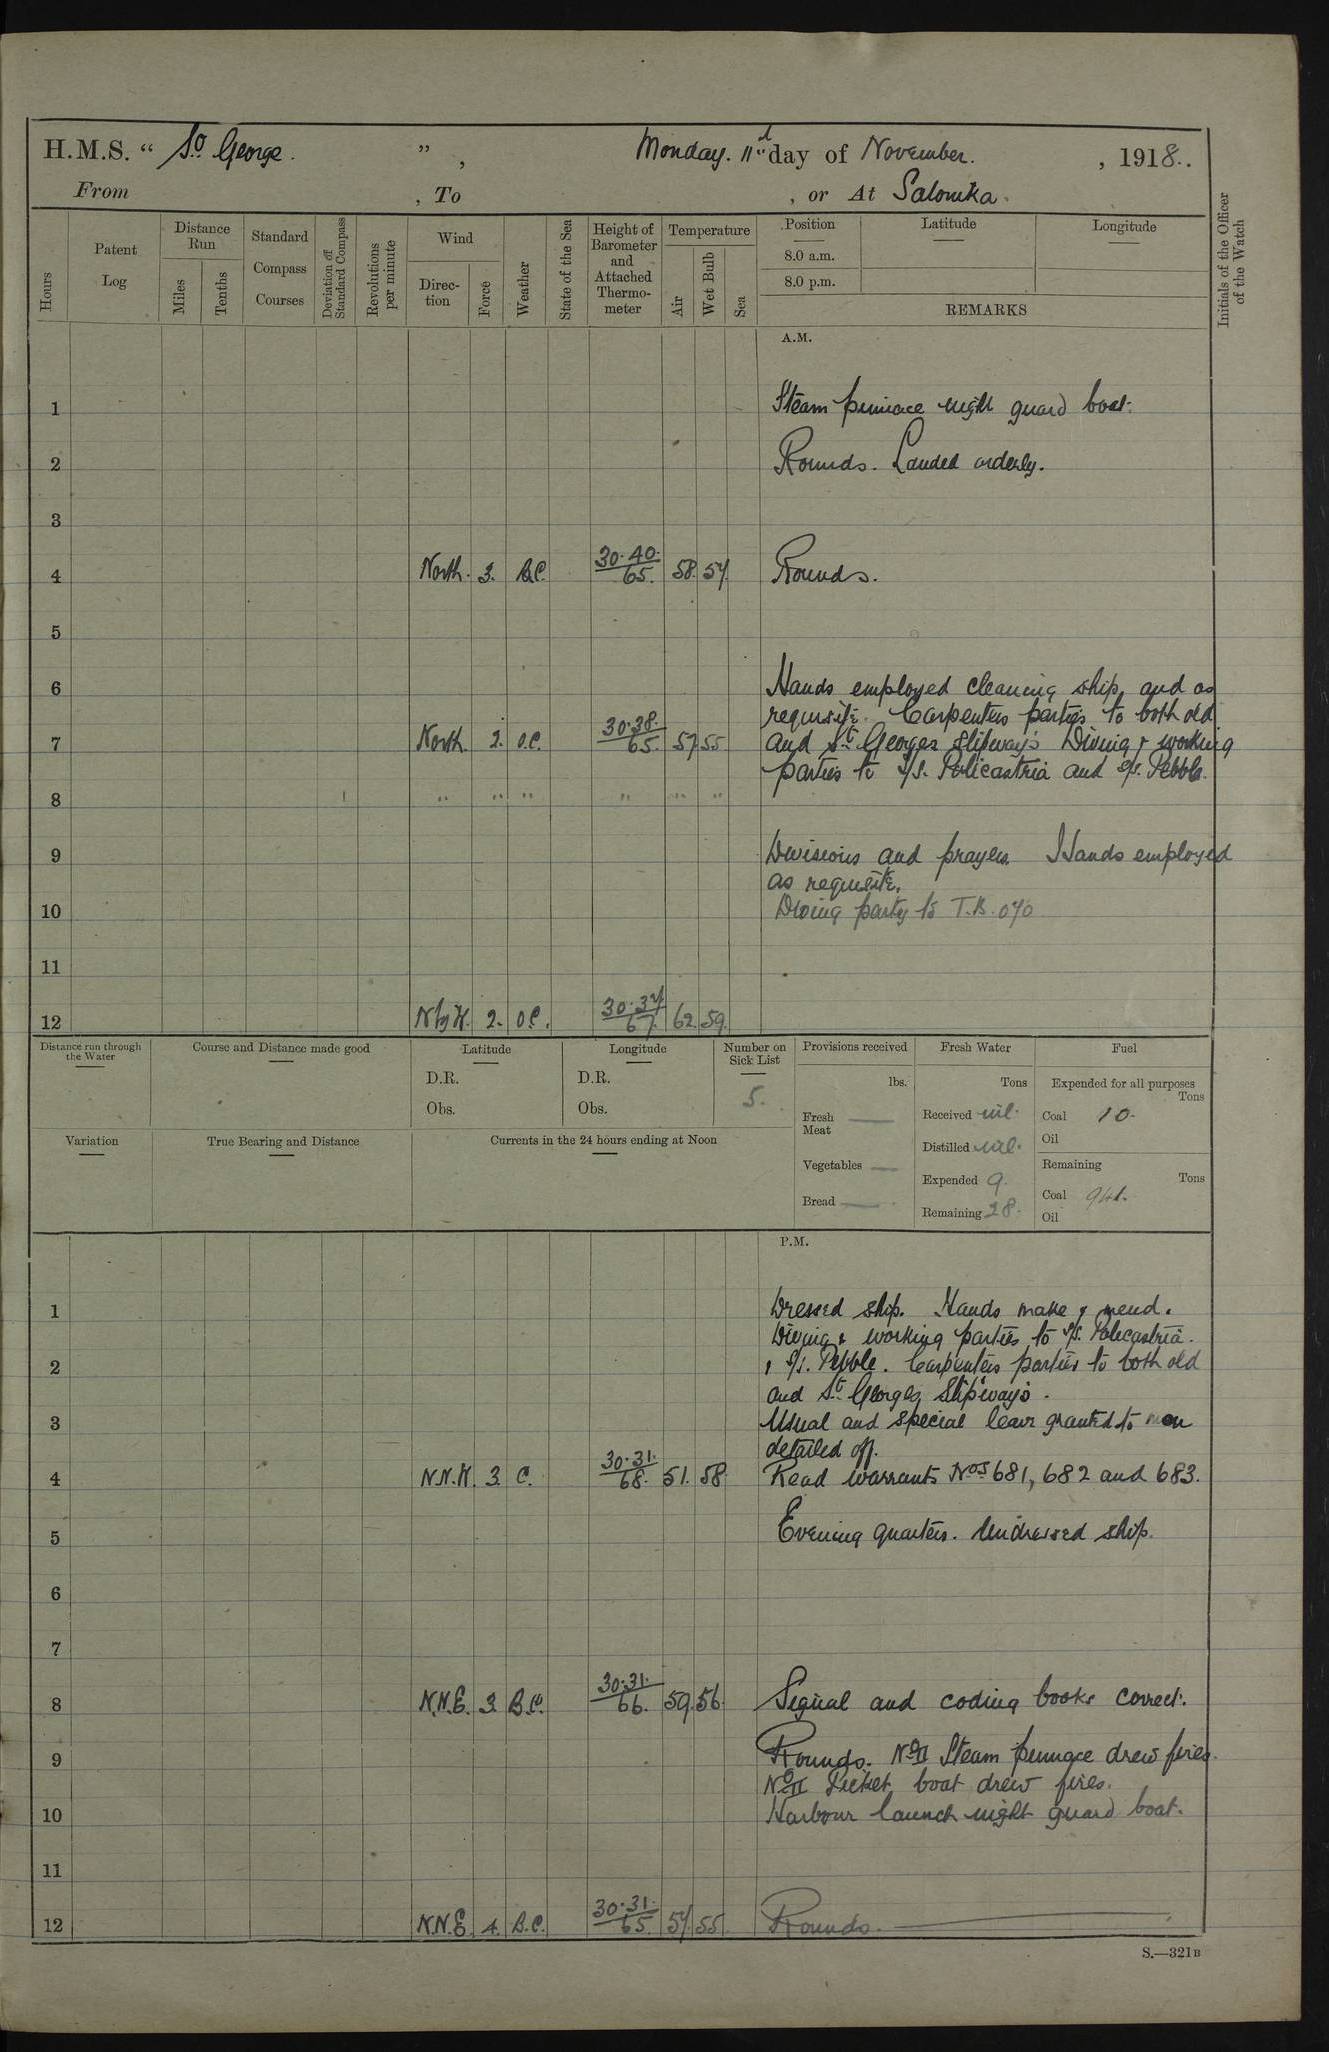 H.M.S. “ St George. ” , Monday. 11th day of November. , 1918.
From , To , or At Salonika.
Hours
Patent Log
Distance Run
Miles
Tenths
Standard Compass Courses
Deviation of Standard Compass
Revolutions per minute
Wind
Direction
Force
Weather
State of the Sea
Height of Barometer and Attached Thermometer
Temperature
Air
Wet Bulb
Sea
Position
8.0 a.m.
8.0 p.m.
Latitude
Longitude
REMARKS
Initials of the Officer of the Watch
A.M.
1 Steam pinnace night guard boat.
2 Rounds. Landed orderly.
3
4 North. 3. B.C. 30.40. 65. 58. 57. Rounds.
5
6 Hands employed cleaning ship, and as
requisite. Carpenters parties to both old
7 North. 2. O.C. 30.38. 65. 57. 55 and St Georges slipways Diving & working
parties to S/S. Policastria and S/S. Pebble.
8 " " " " " "
9 Divisions and prayers. Hands employed
as requisite.
10 Diving party to T.B. 070
11
12 N by W. 2. O.C. 30.37. 67. 62. 59.
Distance run through the Water
Course and Distance made good
Latitude
D.R.
Obs.
Longitude
D.R.
Obs.
Number on Sick List
5.
Provisions received
lbs.
Fresh Meat —
Vegetables —
Bread —
Fresh Water
Tons
Received nil.
Distilled nil.
Expended 9.
Remaining 28.
Fuel
Expended for all purposes
Tons
Coal 10.
Oil
Remaining
Tons
Coal 941.
Oil
Variation
True Bearing and Distance
Currents in the 24 hours ending at Noon
P.M.
1 Dressed ship. Hands make & mend.
Diving & working parties to S/S. Policastria.
2 & S/S. Pebble. Carpenters parties to both old
and St Georges Slipways.
3 Usual and special leave granted to men
detailed off.
4 N.N.W. 3. C. 30.31. 68. 51. 58. Read warrants Nos 681, 682 and 683.
5 Evening quarters. Undressed ship.
6
7
8 N.N.E. 3. B.C. 30.31. 66. 59. 56. Signal and coding books correct.
9 Rounds. No II Steam pinnace drew fires.
No II Picket boat drew fires.
10 Harbour launch night guard boat.
11
12 N.N.E. 4. B.C. 30.31. 65. 57. 55. Rounds.
S.—321B